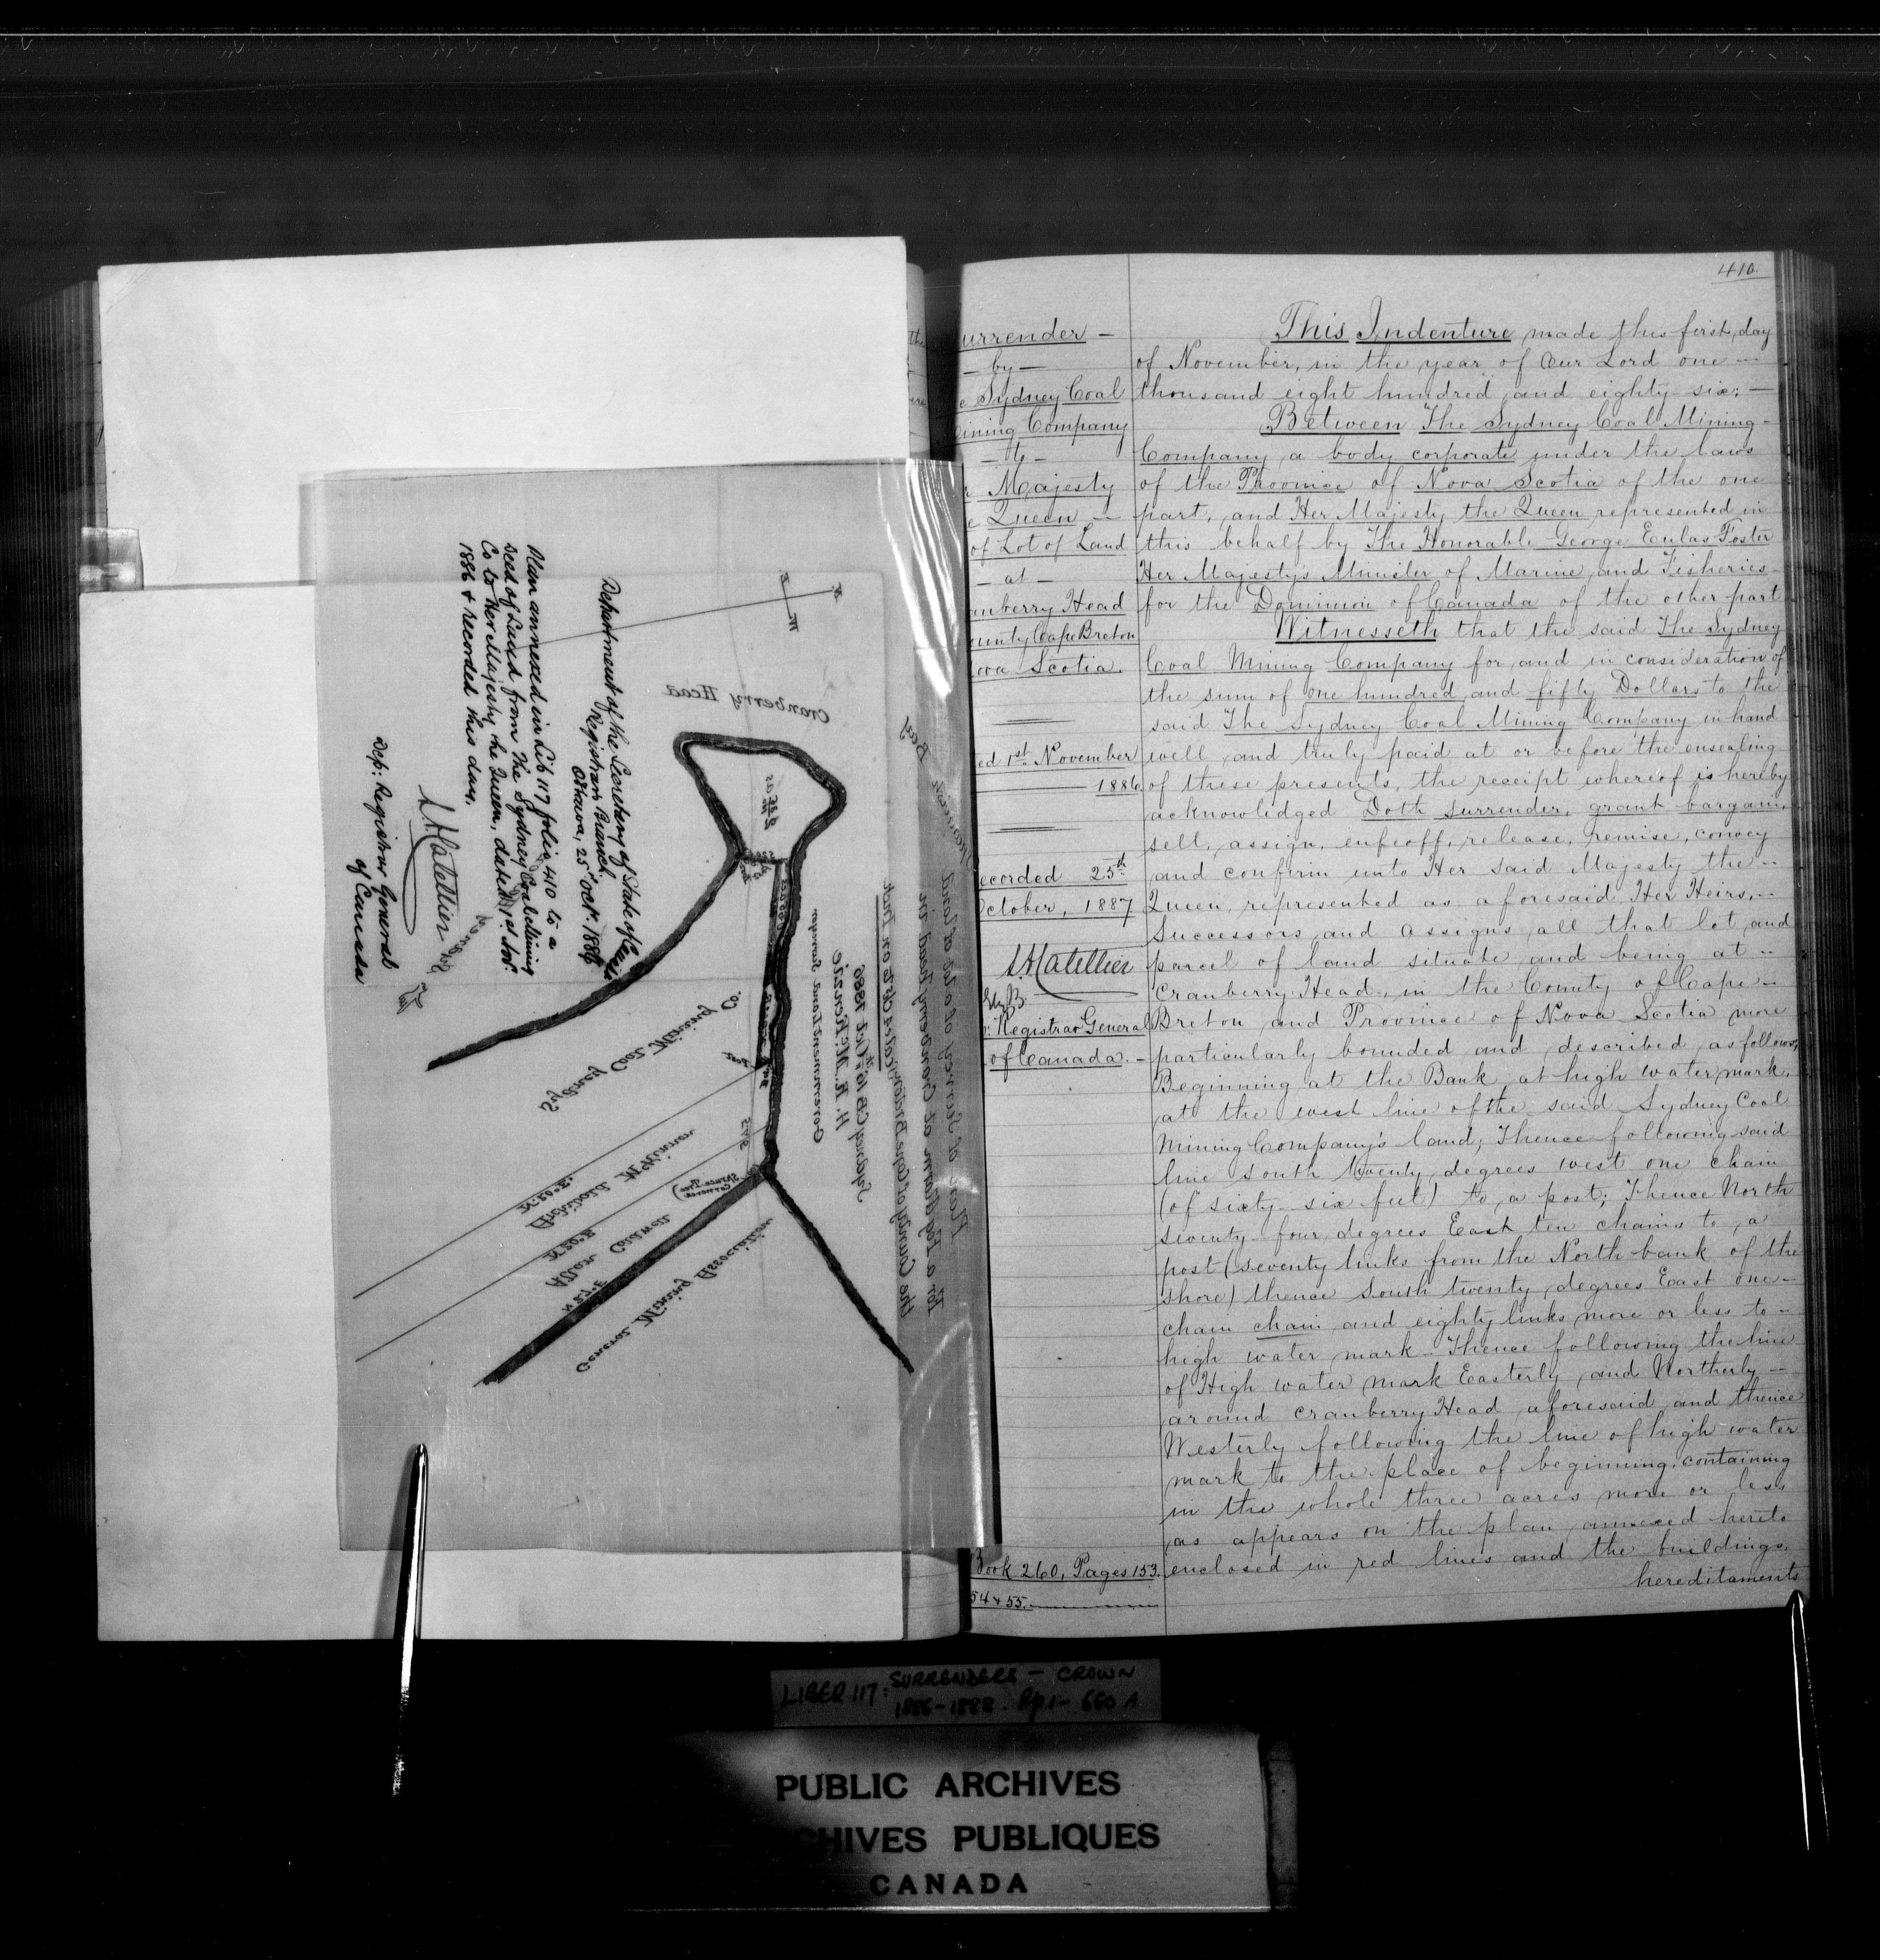 410.
urrender –
– by –
e Sydney Coal
ining Company
– to –
r Majesty
e Queen –
of Lot of Land
– at –
anberry Head
ounty Cape Breton
ova Scotia.
ed 1st November
1886
ecorded 25th
October, 1887
L. A. Catellier
Registrar General
of Canada. –
Book 260, Pages 153.
54 & 55.
This Indenture made this first day
of November, in the year of Our Lord one –
thousand eight hundred and eighty-six; –
Between The Sydney Coal Mining –
Company, a body corporate under the laws
of the Province of Nova Scotia of the one
part, and Her Majesty the Queen represented in
this behalf by The Honorable George Eulas Foster
Her Majesty's Minister of Marine and Fisheries
for the Dominion of Canada of the other part
Witnesseth that the said The Sydney
Coal Mining Company for and in consideration of
the sum of one hundred and fifty Dollars to the
said The Sydney Coal Mining Company in hand
well and truly paid at or before the ensealing
of these presents, the receipt whereof is hereby
acknowledged Doth surrender, grant bargain,
sell, assign, enfeoff, release, remise, convey
and confirm unto Her said Majesty the –
Queen, represented as aforesaid Her Heirs, –
Successors and Assigns, all that lot and
parcel of land situate and being at –
Cranberry Head, in the County of Cape –
Breton and Province of Nova Scotia more
particularly bounded and described as follows,
Beginning at the Bank at high water mark,
at the west line of the said Sydney Coal
Mining Company's land; Thence following said
line South twenty degrees west one chain
(of sixty-six feet) to a post; Thence North
seventy-four degrees East ten chains to a
post (seventy links from the North bank of the
shore) thence South twenty degrees East one –
chain chain and eighty links more or less to –
high water mark – Thence following the line
of High water mark Easterly and Northerly –
around Cranberry Head aforesaid and thence
Westerly following the line of high water
mark to the place of beginning, containing
in the whole three acres more or less
as appears on the plan annexed hereto
enclosed in red lines and the buildings,
hereditaments
Department of the Secretary of State of Canada
Registrar's Branch,
Ottawa, 25th Oct. 1886
Plan annexed in Lib 117 folio 410 to a
Deed of Land from The Sydney Coal Mining
Co to Her Majesty the Queen, dated 1st Nov.
1886 & recorded this day.
L. A. Catellier
Dep: Registrar General
of Canada
Cranberry Head
Sydney Coal Mining Co.
Archibald McKinnon
Allan Coldwell
N 27° E
General Mining Association
Plan of Survey of lot of land
For a Fog Alarm at Cranberry Head in
the County of Cape Breton,
Sydney CB 16th Oct 1886
H. R. McKenzie
Government Land Surveyor
Bay
LIBER 117: SURRENDERS – CROWN
1886–1888. Pp. 1 – 660 A
PUBLIC ARCHIVES
CHIVES PUBLIQUES
CANADA